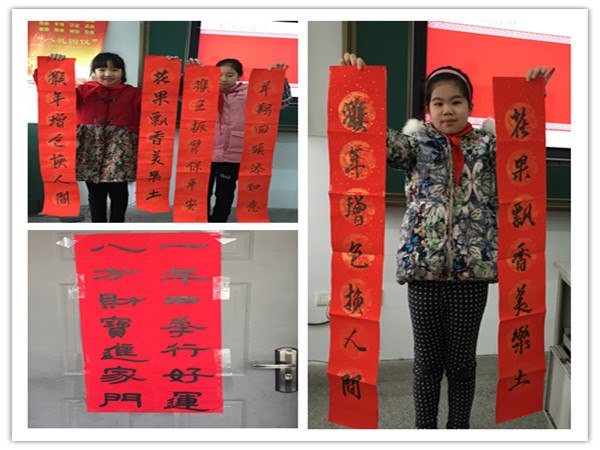 "八礼四仪"
花果飄香美樂土
猴年增色換人間
回頭添如意
猴王振臂保平安
一年四季行好運
八方財寶進家門
花果飄香美樂土
猴年增色換人間